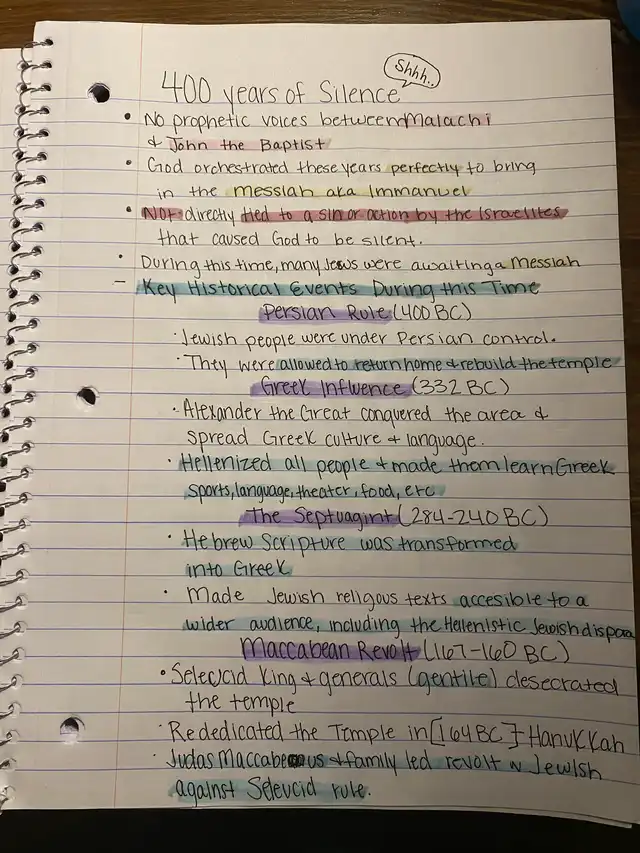 Shhh..
400 years of Silence
• No prophetic voices between Malachi
& John the Baptist
• God orchestrated these years perfectly to bring
in the messiah aka Immanuel
• NOT directly tied to a sin or action by the Israelites
that caused God to be silent.
• During this time, many Jews were awaiting a messiah
- Key Historical Events During this Time
Persian Rule (400 BC)
· Jewish people were under Persian control.
· They were allowed to return home & rebuild the temple
Greek Influence (332 BC)
· Alexander the Great conquered the area &
spread Greek culture & language.
· Hellenized all people & made them learn Greek
sports, language, theater, food, etc
The Septuagint (284-240 BC)
· Hebrew Scripture was transformed
into Greek
· Made Jewish religous texts accesible to a
wider audience, including the Hellenistic Jewish dispaa
Maccabean Revolt (167-160 BC)
• Seleucid King & generals (gentile) desecrated
the temple
· Rededicated the Temple in [164 BC] - Hanukkah
· Judas Maccabeus & family led revolt w Jewish
against Seleucid rule.